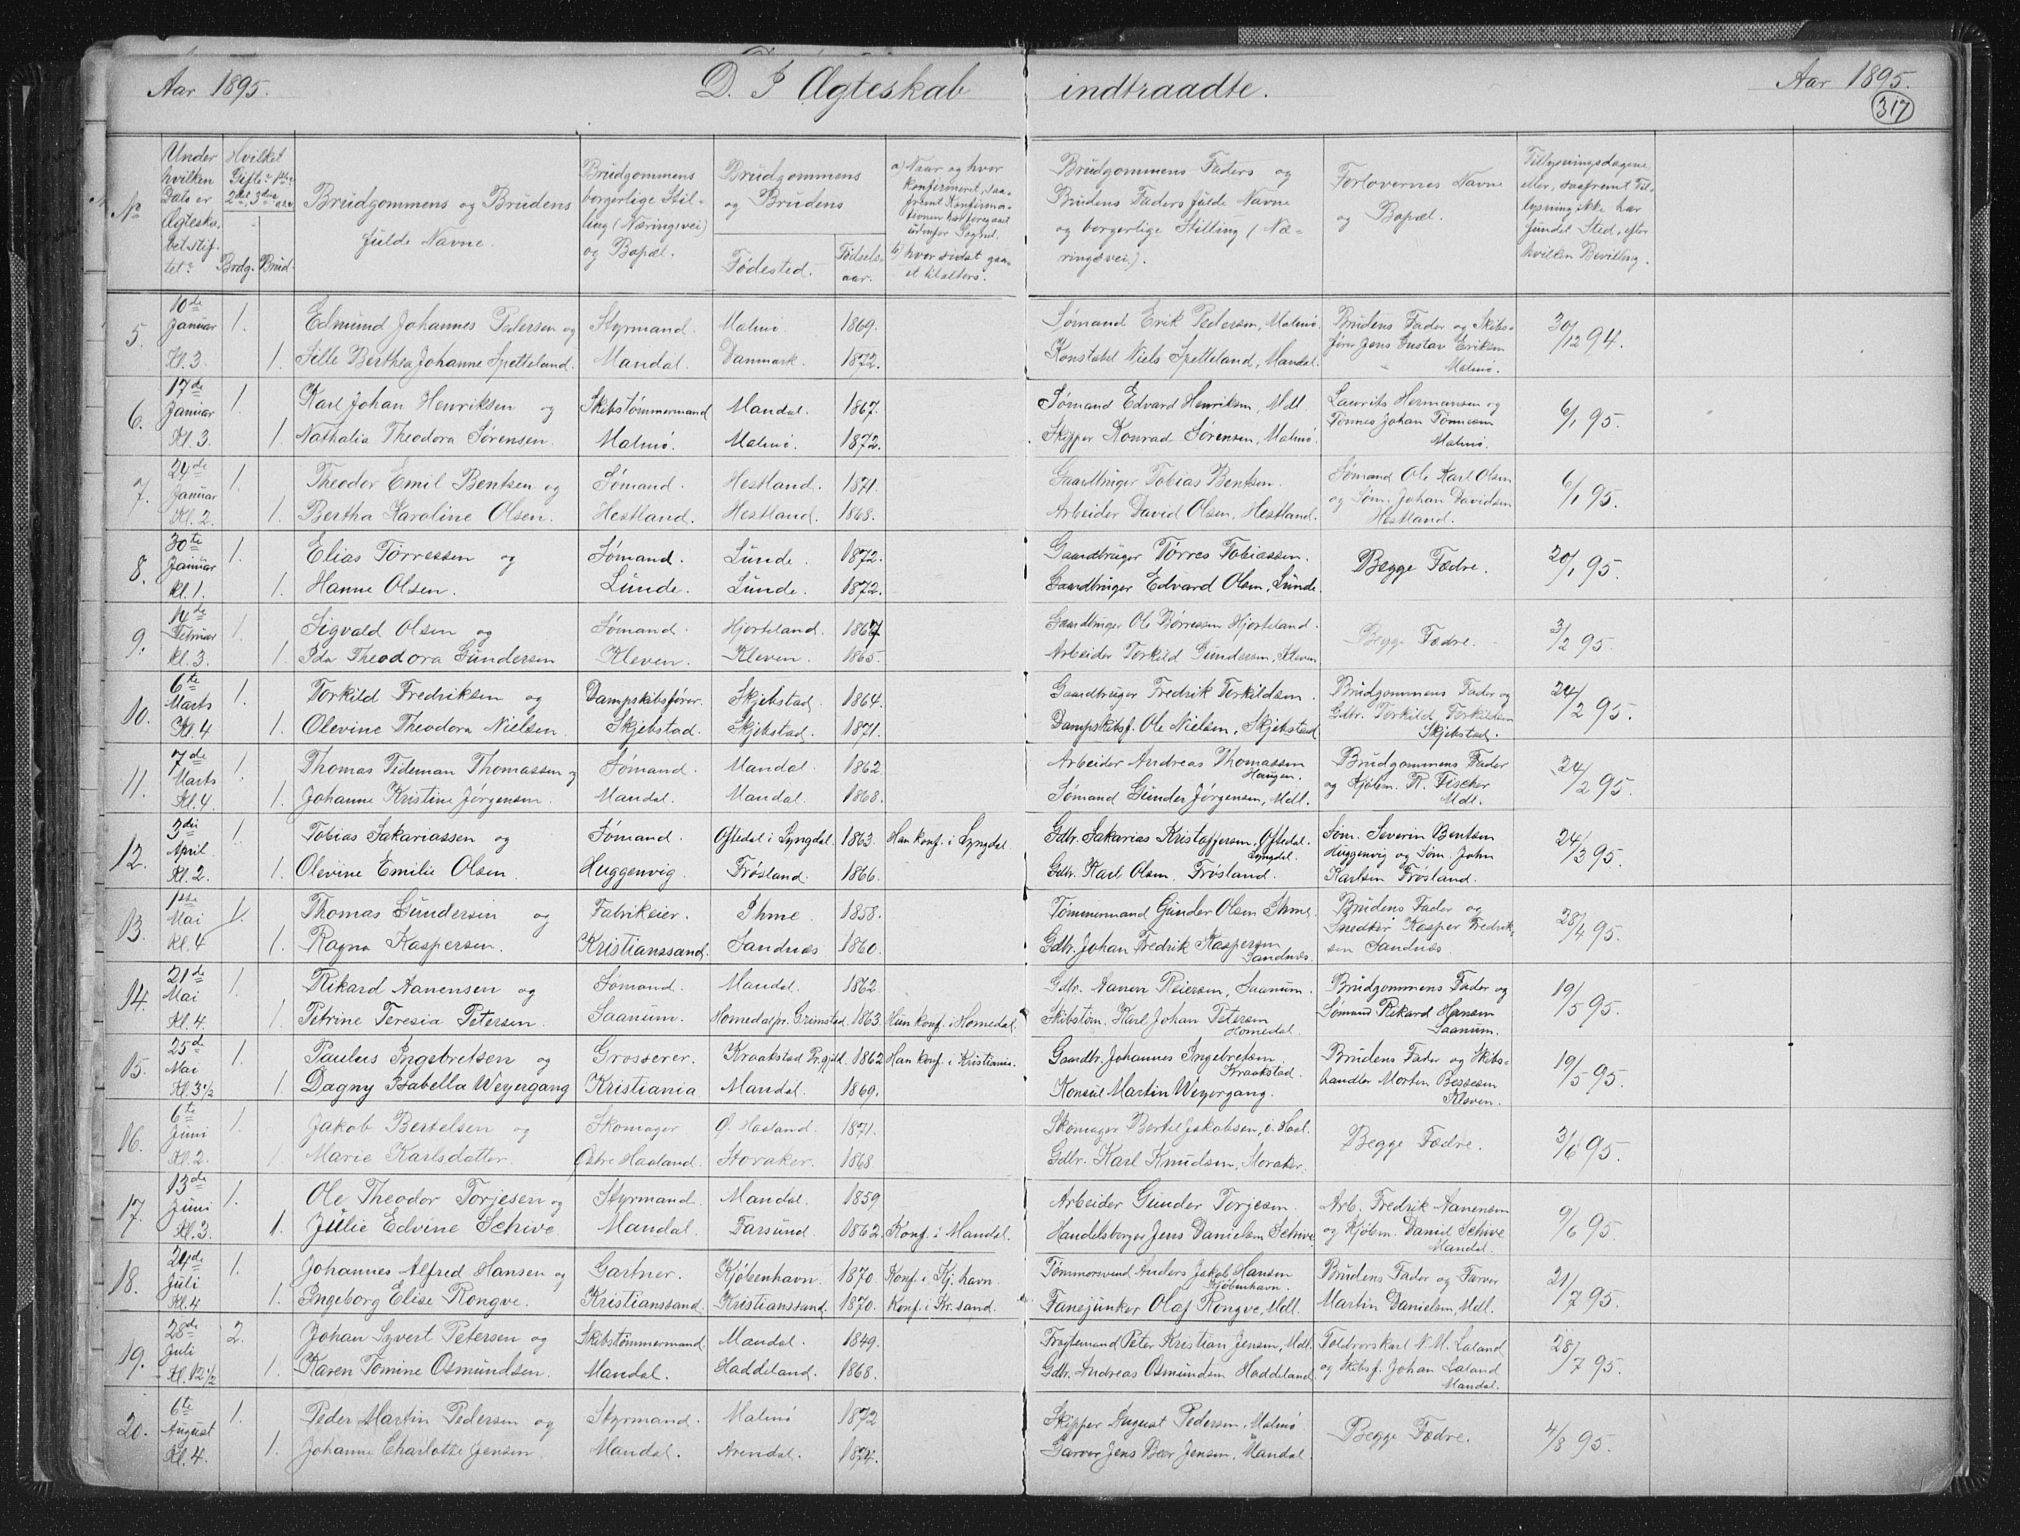 Aar 1895. D. I Ægteskab indtraadte. Aar 1895.
317
No
Under hvilken Dato er Ægteskabet stiftet?
Hvilket Gifte: 1ste 2det, 3die
Brdg. Brud.
Brudgommens og Brudens fulde Navne.
Brudgommens borgerlige Stilling (Næringsvei) og Bopæl.
Brudgommens og Brudens
Fødested. Fødselsaar.
a) Naar og hvor konfirmeret, saafremt Konfirmationen har foregaaet udenfor Sognet.
b) hvor sidst gaaet til alters.
Brudgommens Faders og Brudens Faders fulde Navne og borgerlige Stilling (Næringsvei).
Forlovernes Navne og Bopæl.
Tillysningsdagene, eller, saafremt Tillysning ikke har fundet Sted, efter hvilken Bevilling.
5. 10de Januar Kl. 3. 1. Edmund Johannes Pedersen og Styrmand. Malmø 1869. Sømand Erik Pedersen, Malmø. Brudens Fader og Skibsfører Jens Gustav Eriksen Malmø. 30/12 94.
1. Sille Berthea Johanne Spetteland. Mandal. Danmark. 1872. Konstabel Niels Spetteland, Mandal.
6. 17de Januar Kl. 3. 1. Karl Johan Henriksen og Skibstømmermand Mandal. 1867. Sømand Edvard Henriksen, Mdl. Laurits Hermansen og Tønnes Johan Tønnesen Malmø. 6/1 95.
1. Nathalia Theodora Sørensen. Malmø. Malmø. 1872. Skipper Konrad Sørensen, Malmø.
7. 24de Januar Kl. 2. 1. Theodor Emil Bentsen og Sømand. Hestland. 1871. Gaardbruger Tobias Bentsen. Sømand Ole Karl Olsen og Søm. Johan Davidsen Hestland. 6/1 95.
1. Bertha Karoline Olsen. Hestland. Hestland. 1868. Arbeider David Olsen, Hestland.
8. 30te Januar kl. 1. 1. Elias Tørressen og Sømand. Lunde. 1872. Gaardbruger Tørres Tobiassen. Begge Fædre. 20/1 95.
1. Hanne Olsen. Lunde. Lunde. 1872. Gaardbruger Edvard Olsen, Lunde.
9. 14de Februar kl. 3. 1. Sigvald Olsen og Sømand. Hjorteland. 1867 Gaardbruger Ole Børresen Hjorteland. Begge Fædre. 3/2 95.
1. Ida Theodora Gundersen Kleven. Kleven. 1865. Arbeider Torkild Gundersen, Kleven
10. 6te Marts Kl. 4 1. Torkild Fredriksen og Dampskibsfører. Skjebstad. 1864. Gaardbruger Fredrik Torkildsen. Brudgommens Fader og Gdbr. Torkild Torkildsen Skjebstad. 24/2 95.
1. Olevine Theodora Nielsen. Skjebstad. Skjebstad. 1871. Dampskibsf. Ole Nielsen, Skjebstad
11. 7de Marts Kl. 4. 1. Thomas Tideman Thomassen og Sømand. Mandal. 1862. Arbeider Andreas Thomassen Haugen. Brudgommens Fader og Kjøbm. R. Fischer Mdl. 24/2 95.
1. Johanne Kristine Jørgensen. Mandal. Mandal. 1868. Sømand Gunder Jørgensen, Mdl.
12. 3die April Kl. 2. 1. Tobias Sakariassen og Sømand. Oftedal i Lyngdal. 1863. Han konf. i Lyngdal. Gdbr. Sakarias Kristoffersen, Oftedal Lyngdal. Søm. Severin Bentsen Huggenvig og Søm. John Karlsen Frøsland. 24/3 95.
1. Olevine Emilie Olsen. Huggenvig. Frøsland. 1866. Gdbr. Karl Olsen, Frøsland.
13. 1ste Mai kl. 4 1. Thomas Gundersen og Fabrikeier. Ihme. 1858. Tømmermand Gunder Olsen Ihme. Brudens Fader og Snedker Kasper Fredriksen Sandnæs. 28/4 95.
1. Ragna Kaspersen. Kristianssand. Sandnæs 1860. Gdbr. Johan Fredrik Kaspersen Sandnæs.
14. 21de Mai Kl. 4. 1. Rikard Aanensen og Sømand. Mandal. 1862. Gdbr. Aanen Reiersen, Saanum. Brudgommens Fader og Sømand Rikard Hansen Saanum. 19/5 95.
1. Petrine Teresia Petersen. Saanum. Homedal pr. Grimstad. 1863. Hun konf. i Homedal. Skibstøm. Karl Johan Petersen Homedal.
15. 25d Mai Kl. 3 1/2 1. Paulus Ingebretsen og Grosserer. Kraakstad Prgjld. 1862 Han konf. i Kristiania. Gaardbr. Johannes Ingebretsen Kraakstad. Brudens Fader og Skibshandler Morten Bessesen Kleven. 19/5 95.
1. Dagny Isabella Weyergang Kristiania Mandal. 1869. Konsul Martin Weyergang.
16. 6te Juni Kl. 2. 1. Jakob Bertelsen og Skomager. Ø. Haaland. 1871. Skomager Bertel Jakobsen, i Haal. Begge Fædre. 3/6 95.
1. Marie Karlsdatter. Østre Haaland. Storaker. 1868. Gdbr. Karl Knudsen, Storaker.
17. 13de Juni Kl. 3. 1. Ole Theodor Torjesen og Styrmand. Mandal. 1859 Arbeider Gunder Torjesen. Arb. Fredrik Aanensen og Kjøbm. Daniel Schive Mandal. 9/6 95.
1. Julie Edvine Schive. Mandal. Farsund. 1862. Konf. i Mandal. Handelsborger Jens Danielsen Schive
18. 24de Juli Kl. 4 1. Johannes Alfred Hansen og Gartner. Kjøbenhavn. 1870. Konf. i Kj.havn. Tømmersvend Anders Jakob Hansen Kjøbenhavn. Brudens Fader og Farver Martin Danielsen, Mdl. 21/7 95.
1. Ingeborg Elise Rongve. Kristianssand. Kristianssand. 1870. Konf. i Kr.sand. Fanejunker Olaf Rongve, Mdl.
19. 28de Juli Kl. 12 1/2 2. Johan Syvert Petersen og Skibstømmermand. Mandal. 1849. Fragtemand Peter Kristian Jensen, Mdl. Toldvorskarl N. M. Laland og Skibsf. Johan Laland Mandal. 28/7 95.
1. Karen Tomine Osmundsen. Mandal. Haddeland. 1868. Gdbr. Andreas Osmundsen Haddeland.
20. 6te August Kl. 4. 1. Peder Martin Pedersen og Styrmand. Malmø 1872 Skipper August Pedersen, Malmø Begge Fædre. 4/8 95.
1. Johanne Charlotte Jensen. Mandal. Arendal. 1874. Garver Jens Beer Jensen, Mandal.